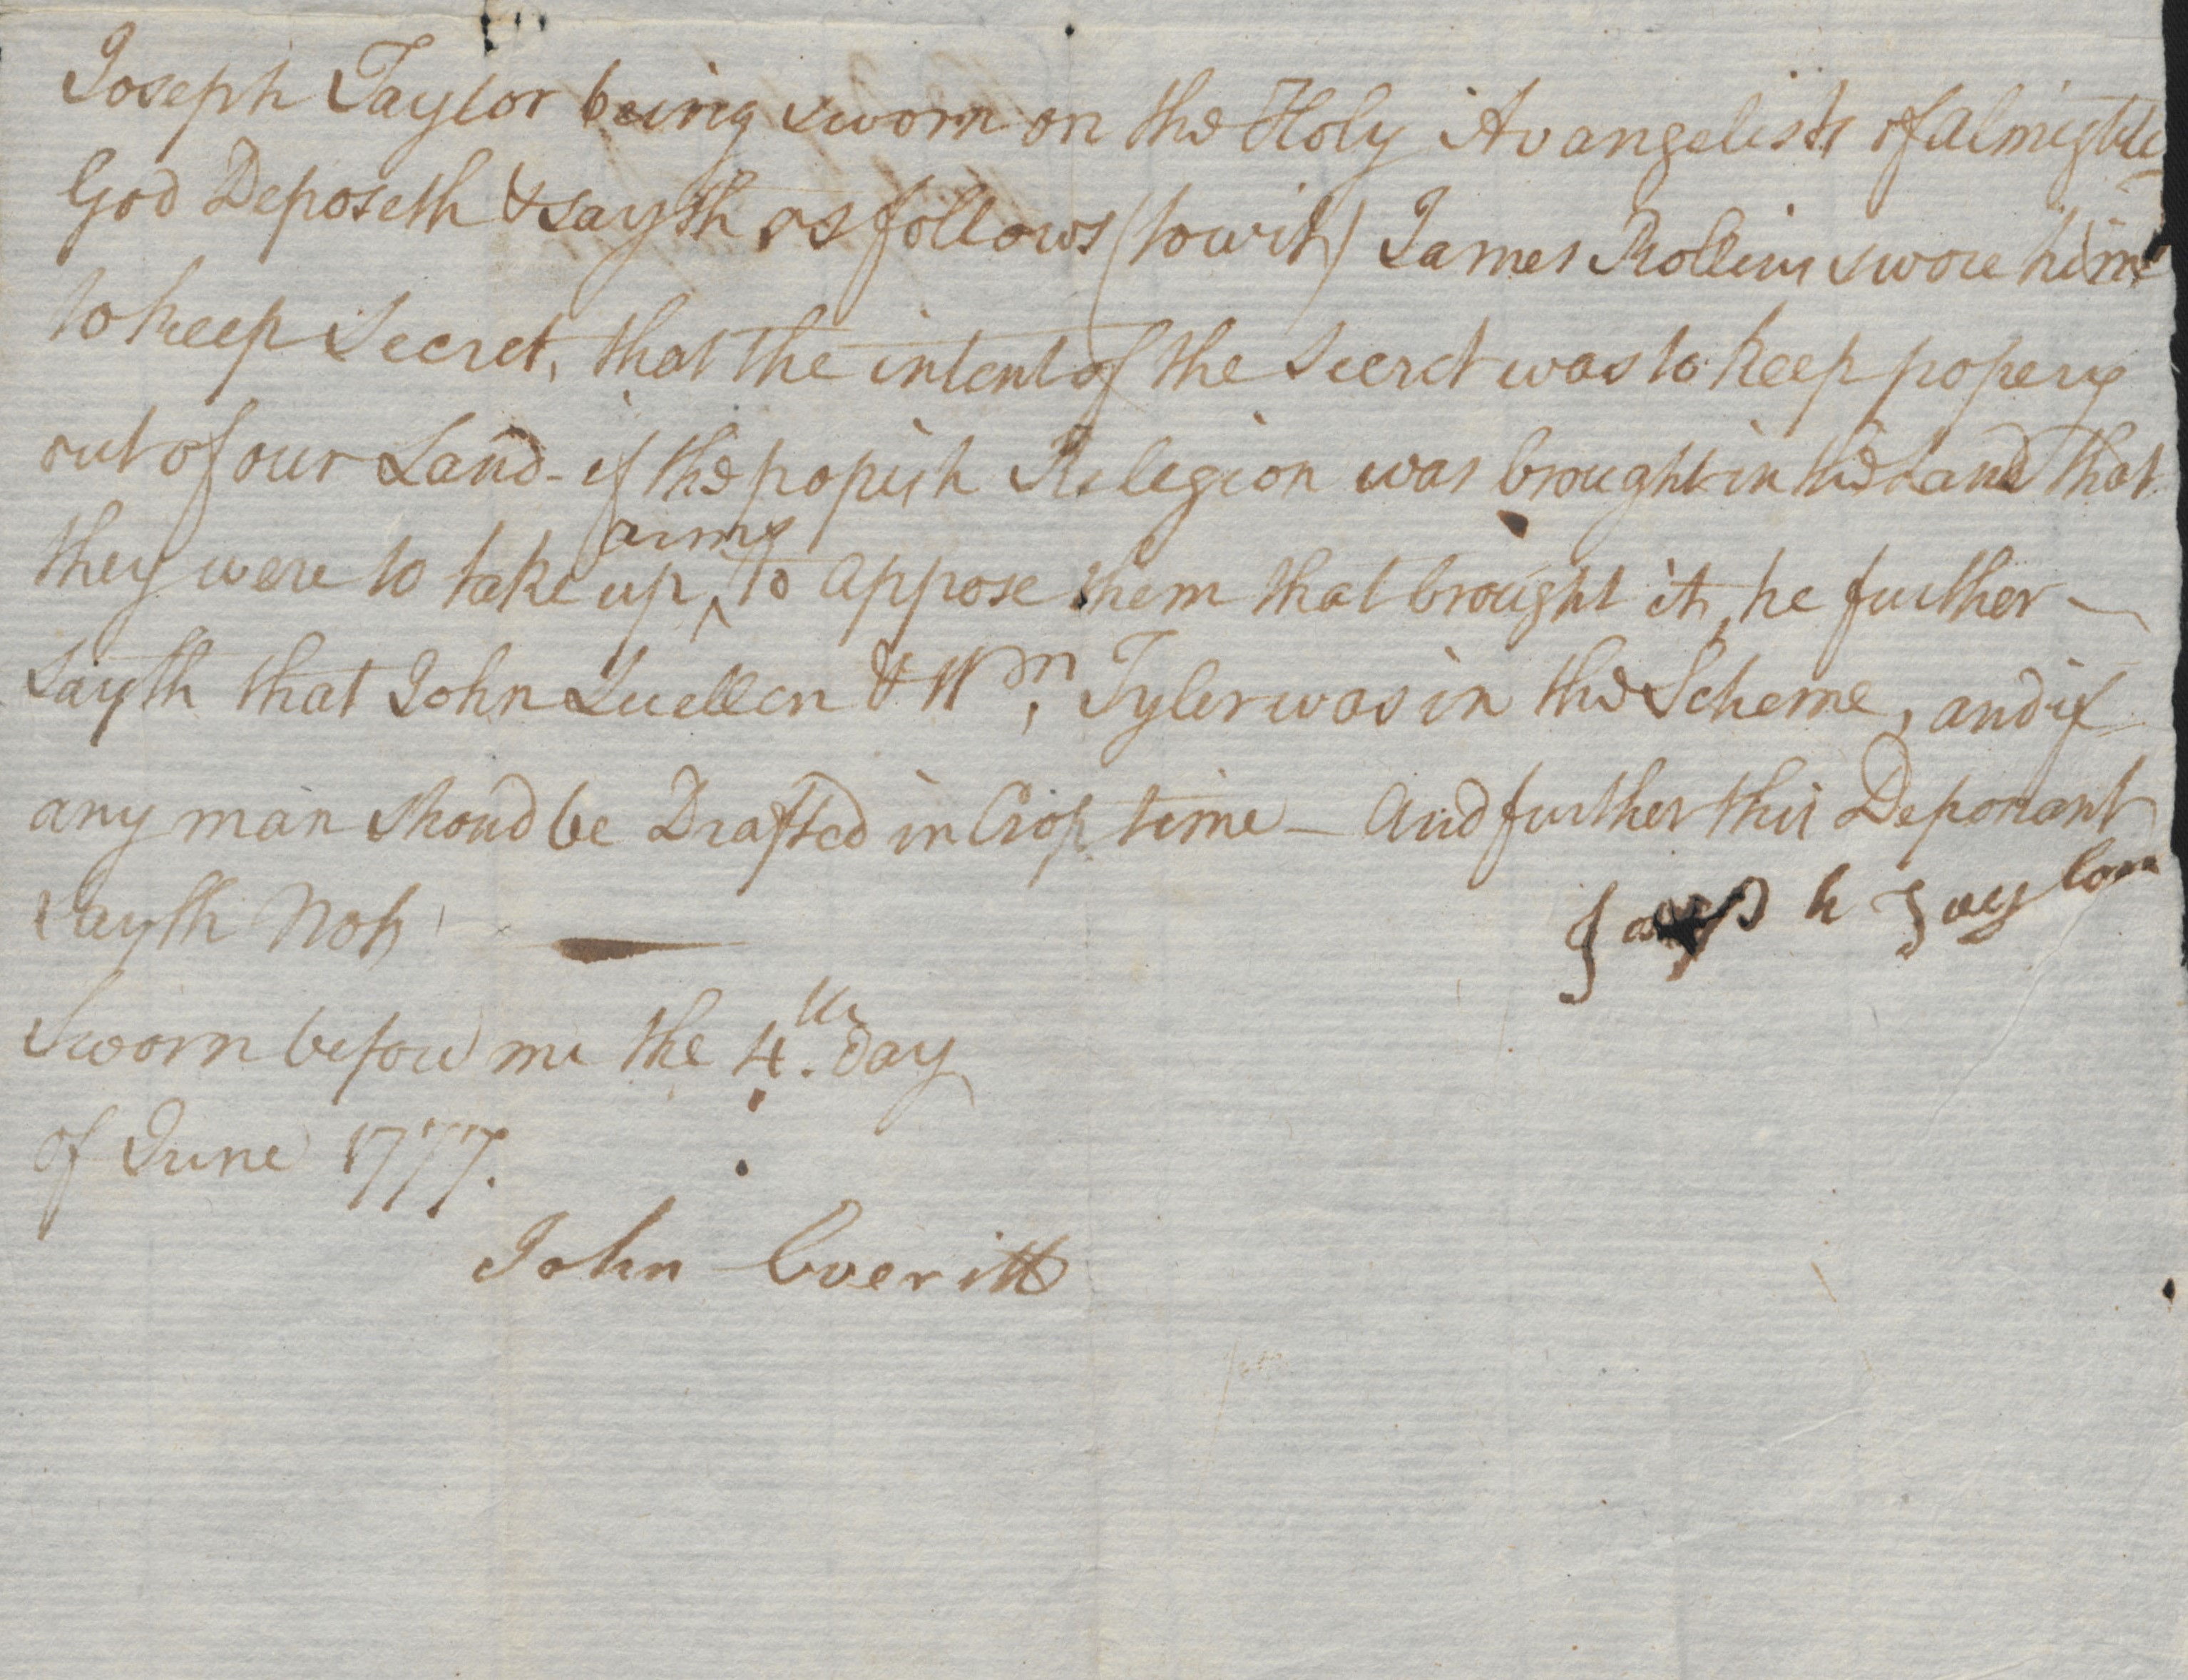 Joseph Taylor being sworn on the Holy Avangelists of almighty
God Deposeth & sayth as follows (towit) James Rollins swore him
to keep secret, that the intent of the secret was to keep popery
out of our Land - if the popish Religion was brought in the Land that
they were to take up ^arms to appose them that brought it, he further
sayth that John Luellen & Wm. Tyler was in the Scheme, and if
any man shoud be Drafted in Crop time — and further this Deponant
sayth Not
Joseph Taylor
Sworn before me the 4th. day
of June 1777.
John Everitt